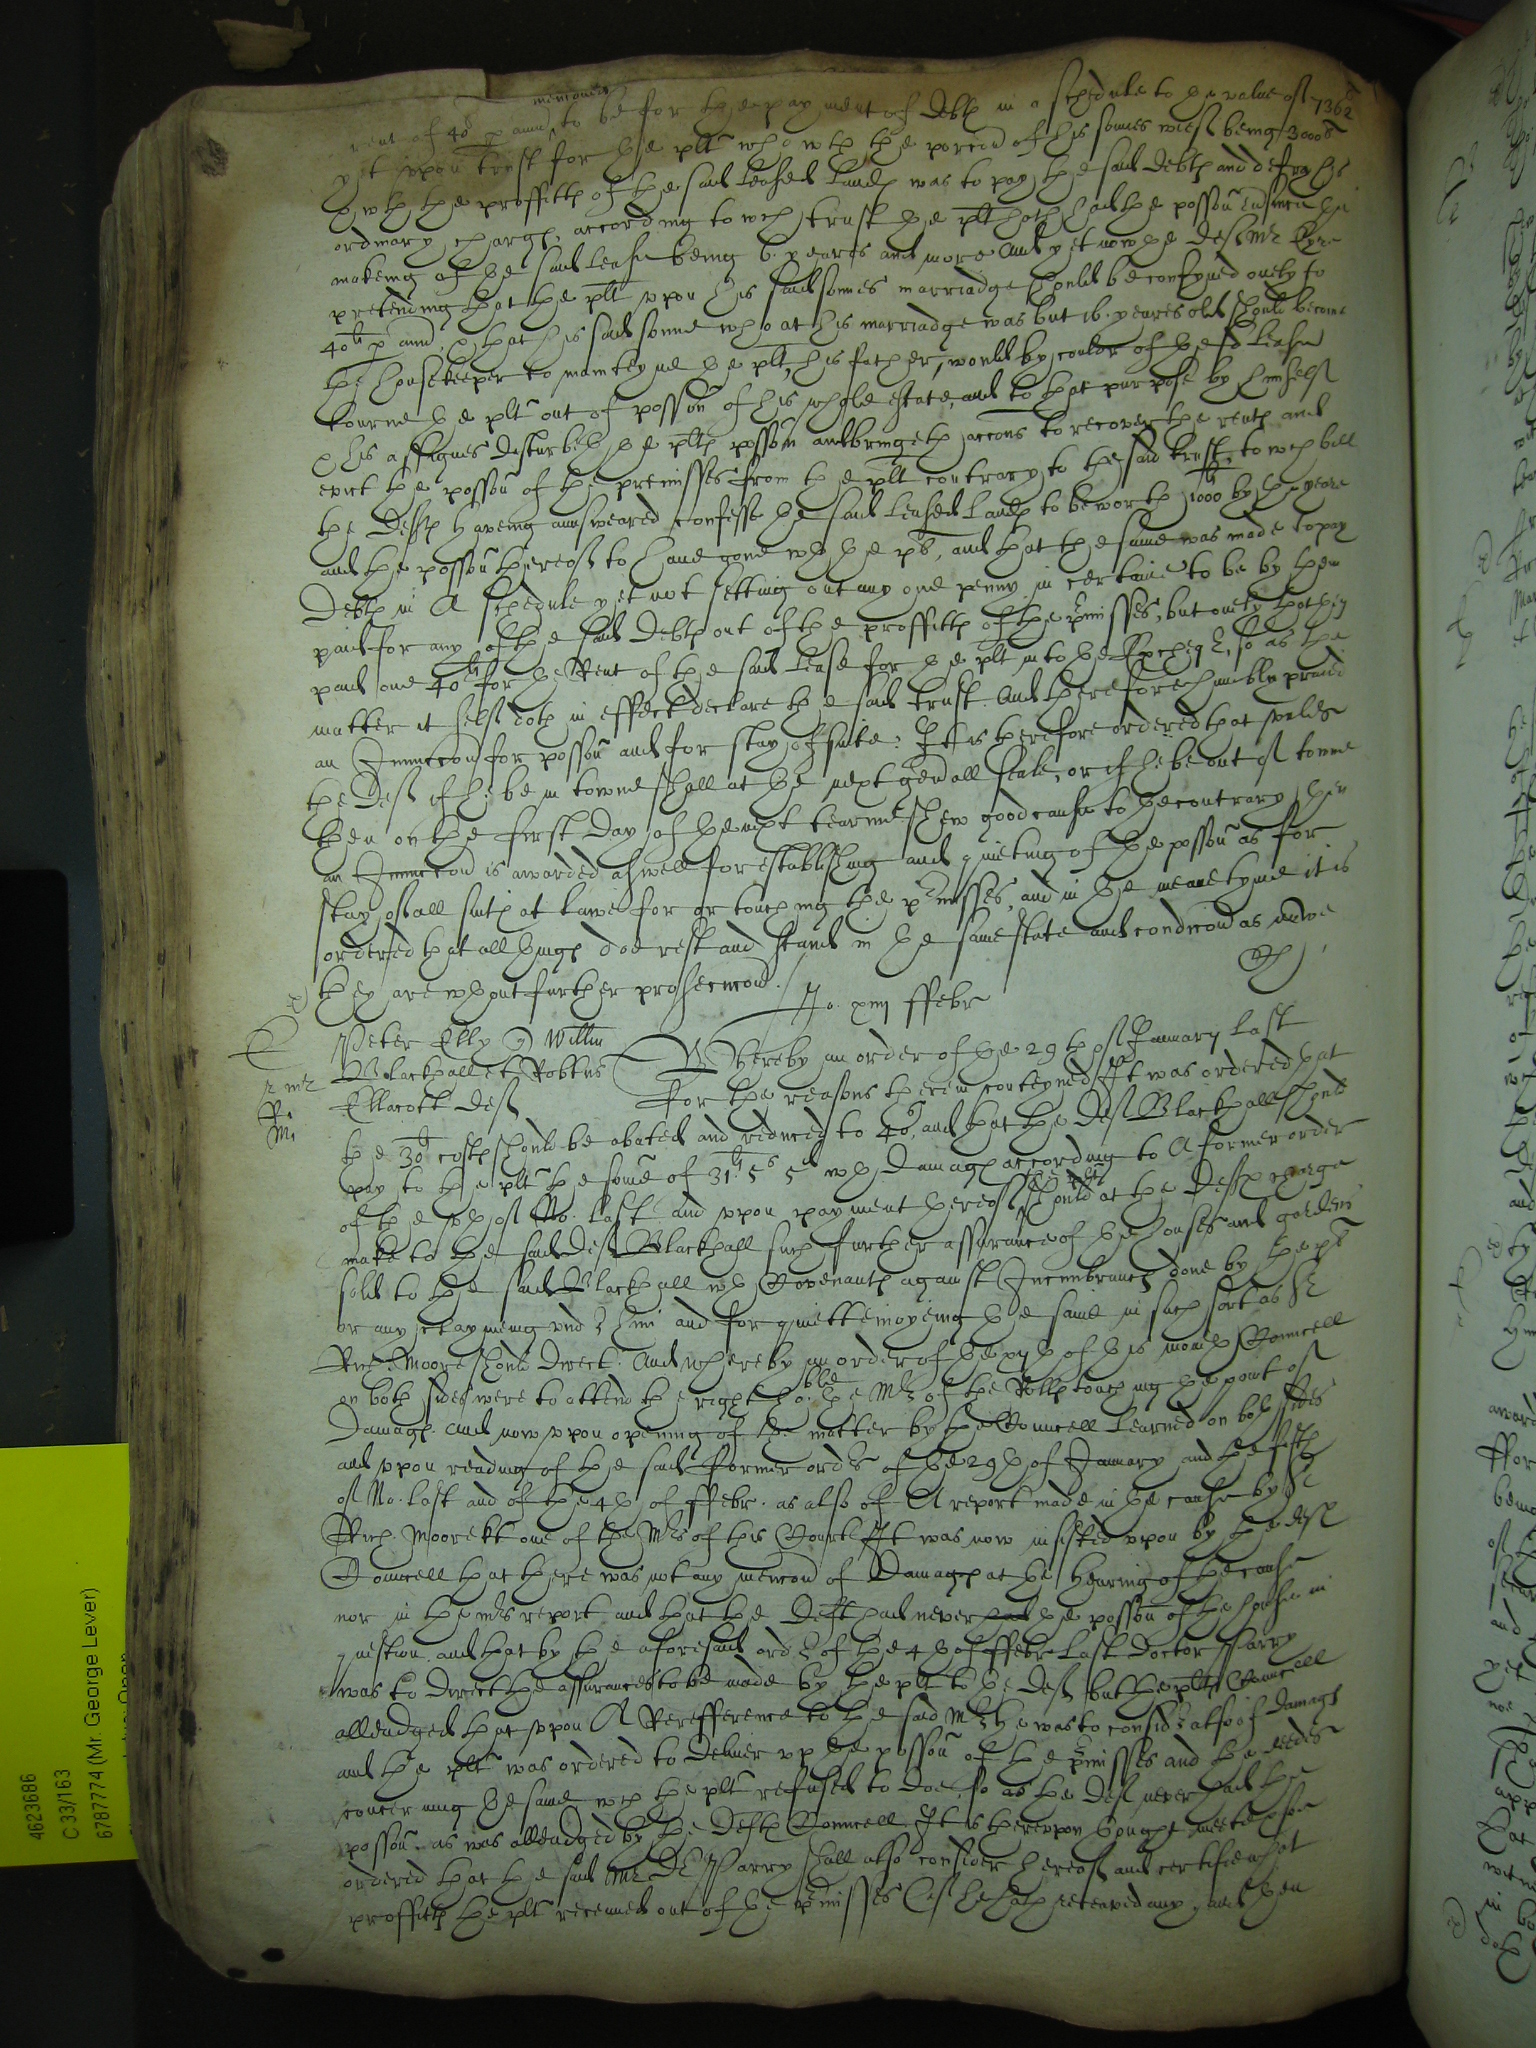 rent of 40s p annu mencioned to be for the payment of debtp in a schedule to the value of 7362li
yet vpon trust for the plt who wth the porcon of his sonnes wief being 3000li
& wth the proffittp of the said leased landp was to pay the said debtp and defray his
ordinary chargp, according to wch trust the plt hath had the possion ensince the
makeing of the said lease being 6. yeares and more And yet now the Deft Mr Eyre
pretending that the plt vpon his said sonnes marriadge should be confyned onely to
40li p annu, & that his said sonne who at his marriadge was but 16. yeares old should become
the housekeeper to mainteyne the plt, his father, would by coulor of the sd lease
tourne the plt out of possion of his whole estate, and to that purpose by himself
& his assignes disturbeth the pltp possion and bringeth accons to recover the rentp and
evict the possion of the premisses from the plt contrary to the said trust, to wch bill
the Deftp haveing aunsweared confesse the said leased landp to be worth 1000li by the yeare
and the possion thereof to have gone wth the plt, and that the same was made to pay
Debtp in A schedule yet not setting out any one penny in certaine to be by them
paid for any of the said debtp out of the proffittp of the pmisses, but onely that they
paid one 40s for the Rent of the said lease for the plt into the Exchequer, so as the
matter it self doth in effect declare the said trust. And therefore humbly praied
an Iniunccon for possion and for stay of suite: It is therefore ordered that vnles
the Deft if he be in towne shall at the next genall seale, or if he be out of towne
then on the first day of the next tearme shew good cause to the contrary then
an Iniunccon is awarded aswell for establishing and quieting of the possion as for
stay of all suitp at lawe for or touching the pmisses, and in the meane tyme it is
ordered that all thingp doe rest and stand in the same state and condicon as nowe
they are wthout further prosecucon.
Io. xiiij ffebr
Peter Elly Willm
Blackhall et Robtus
Ellacott Deft
Whereby an order of the 29th of January last
for the reasons therein conteyned It was ordered that
the 30li costp should be abated and reduced to 40s, and that the Deft Blackhall should
pay to the plt the some of 31li 5s 5d wth Damagp according to A former order
of the of No. last and vpon payment thereof the plt should at the Deftp charge
make to the said Deft Blackhall such further assurance of the houses and gardens
sold to the said Blackhall wth Covenantp against Incumbrancp done by the plt
or any claymeing vnd him and for quiett enioyeing the same in such sort as Sr
Rich: Moore should direct. And whereby an order of the of this month Councell
on both sides were to attend the right hoble the Mr of the Rollp touching the point of
Damagp. And now vpon opening of the matter by the Councell learned on both sides
and vpon reading of the said former ords of the 29th of January and the
of No. last and of the 4th of ffebr. as also of A report made in the cause by Sr
Rich. Moore kt one of the Mrs of this Court It was now insisted vpon by the Deftp
Councell that there was not any mencon of Damagp at the Hearing of the cause
nor in the Mrs report and that the Deft had never had the possion of the house in
question and that by the aforesaid order of the 4th of ffebr last Doctor Parry
was to direct the assurances to be made by the plt to the Deft but the pltp Councell
alleadged that vpon A Refference to the said Mr he was to consider also of damagp
and the plt was ordered to deliver vp the possion of the pmisses and the deedes
concerning the same wch the plt refused to doe, so as the Deft never had the
possion. as was alleadged by the Deftp Councell It is therevpon thought meete & so
ordered that the said Mr Dr Parry shall also consider thereof and certifie what
proffittp the plt received out of the pmisses if he hath received any, and then
4623686
C 33/163
67877774 (Mr. George Lever)